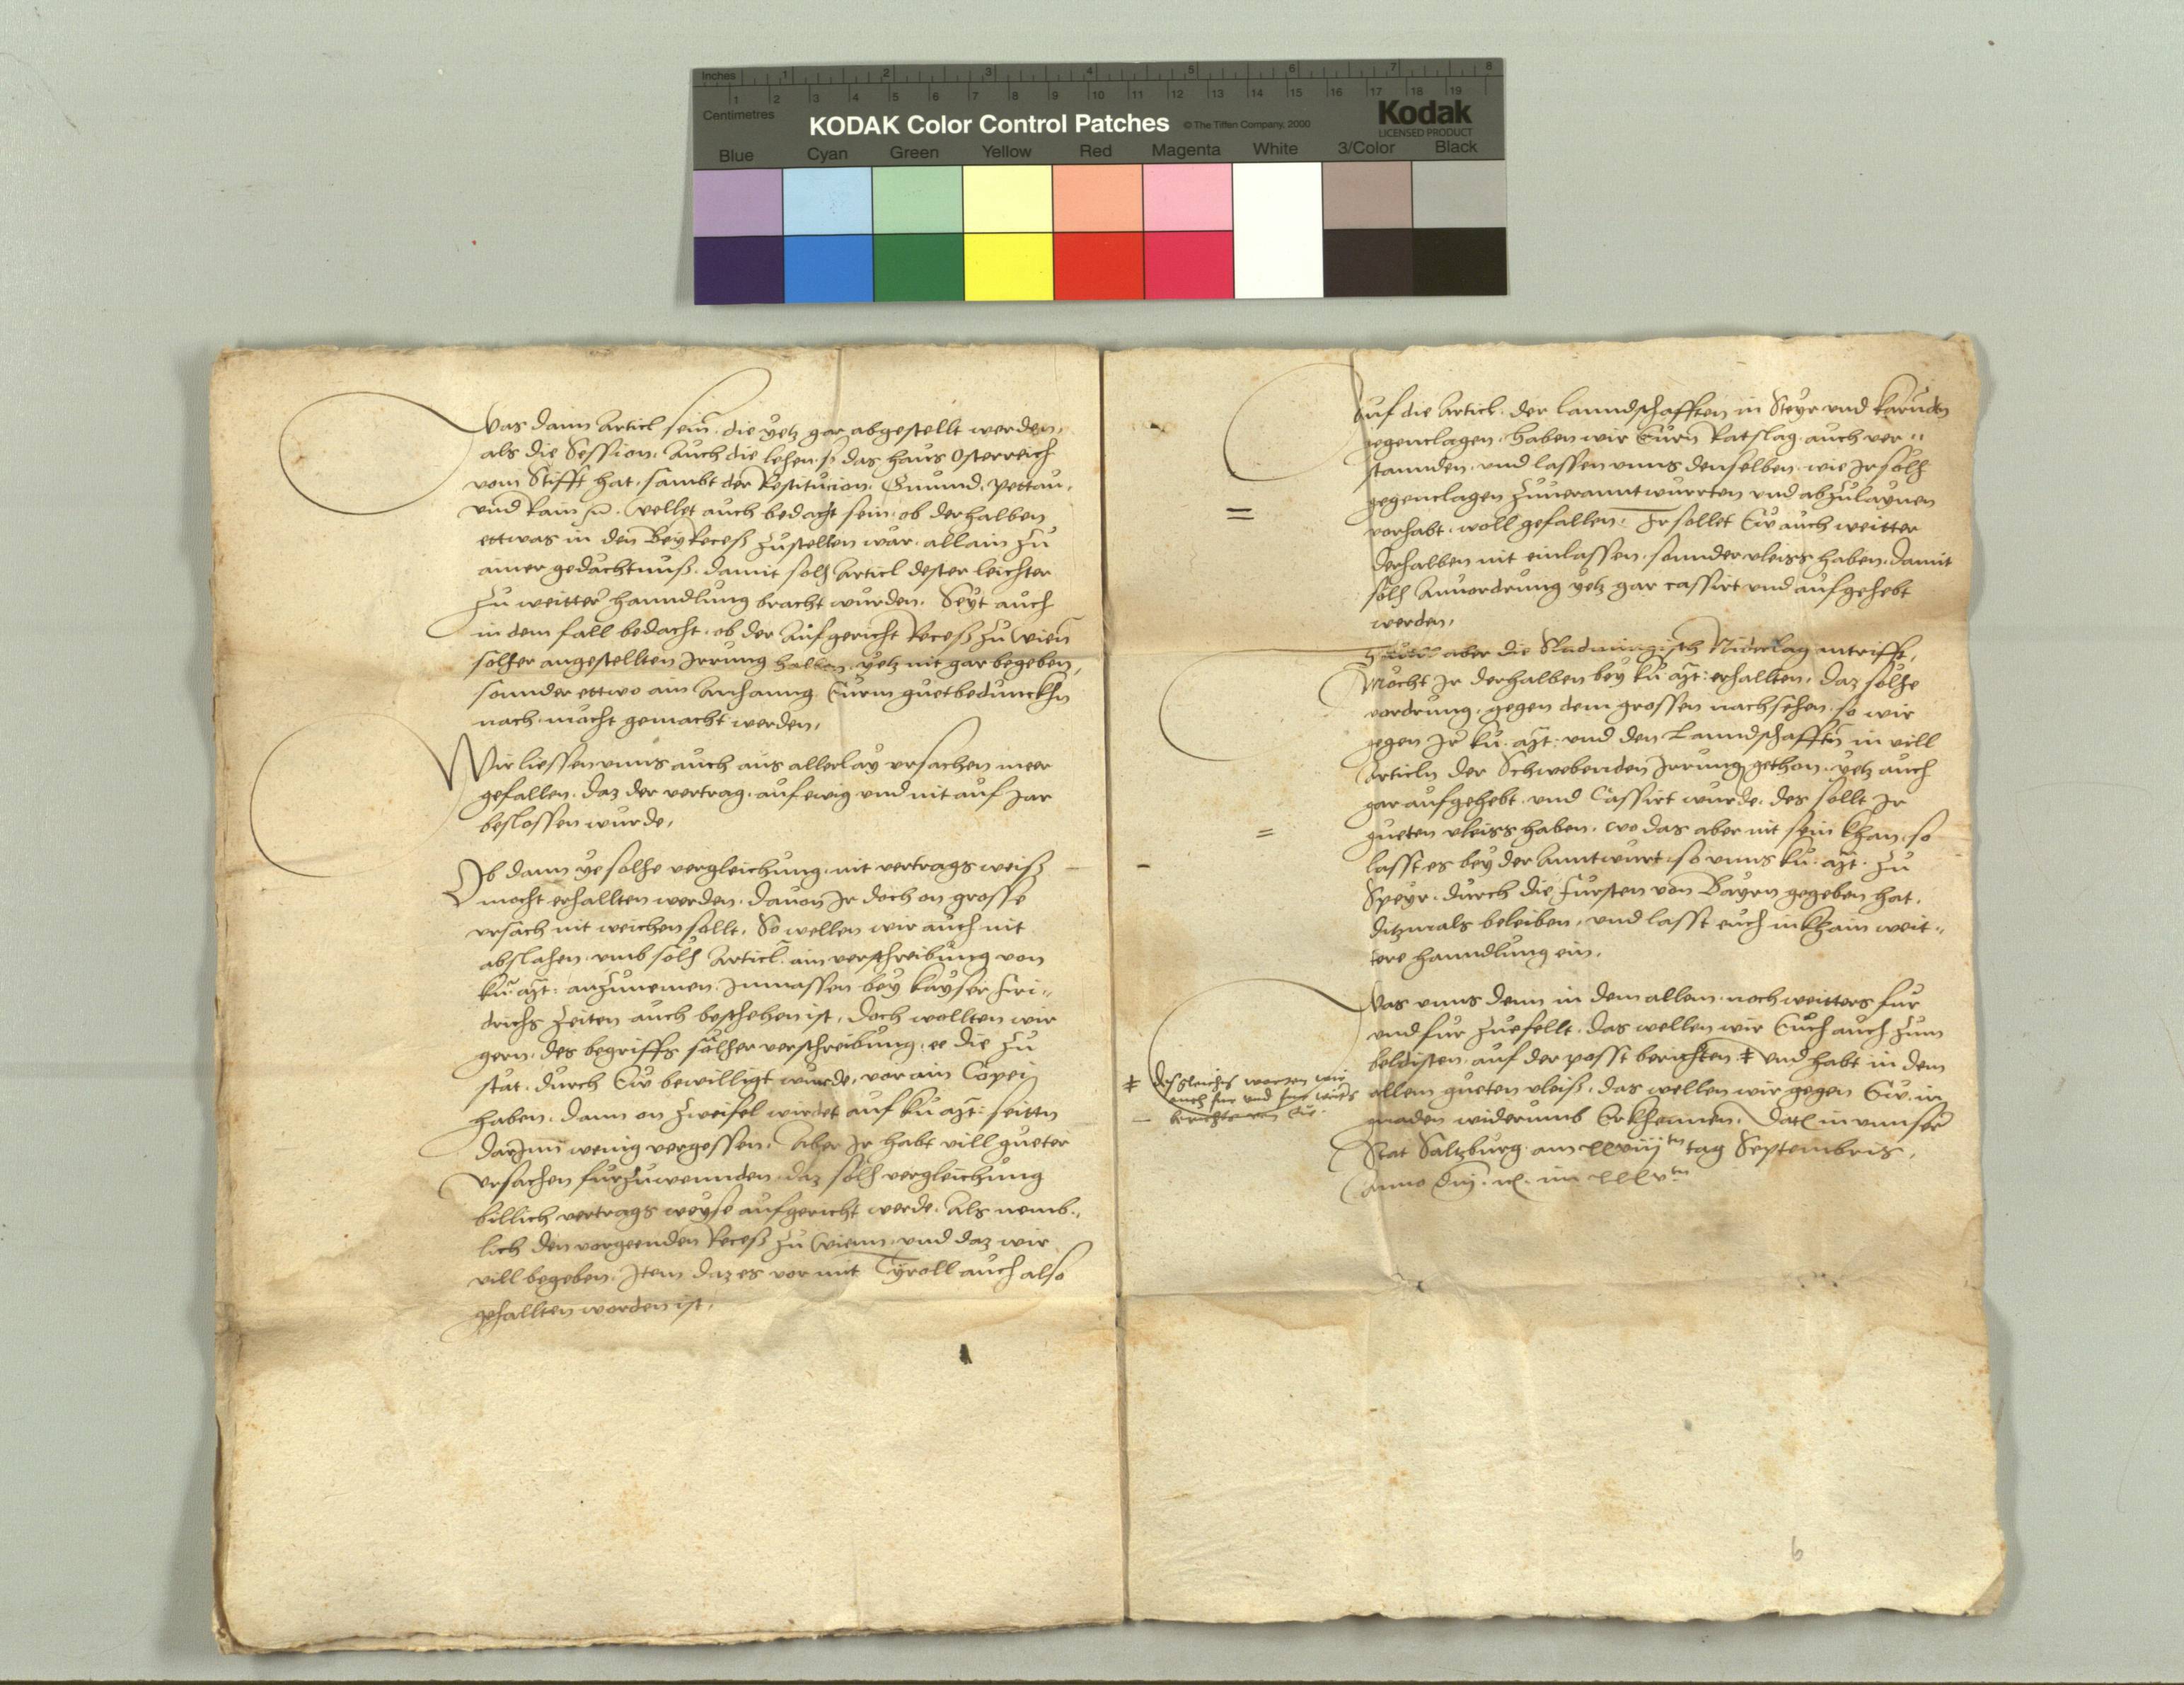 Inches 1 2 3 4 5 6 7 8
Centimetres 1 2 3 4 5 6 7 8 9 10 11 12 13 14 15 16 17 18 19
KODAK Color Control Patches © The Tiffen Company, 2000 Kodak
LICENSED PRODUCT
Blue Cyan Green Yellow Red Magenta White 3/Color Black
Was dann Articl sein die yetz gar abgestellt werden,
als die Session. Auch die lehen so das haus Osterreich
vom Stifft hat, sambt der Restitucion Gmund, Pettau,
und Rain. wellet auch bedacht sein ob derhalben
ettwas in den BeyRecess zustellen wär allain zu
ainer gedächtnuß, damit solh Articl dester leichter
zu weitter hanndlung bracht wurden. Seyt auch
in dem fall bedacht, ob der aufgericht Recess zu Wien
solher angestellten Irrung halben yetz nit gar begeben,
sonnder ettwo ain Anhanng Eurm guetbedunckhn
nach macht gemacht werden,
Wir liessen unns auch aus allerlay ursachen meer
gefallen, daz der vertrag auf ewig und nit auf Jar
beslossen wurde,
Ob dann ye solhe vergleichung nit vertrags weiß
mocht erhallten werden, davon Ir doch on grosse
ursach nit weichen sollt, So wellen wir auch nit
abslahen umb solh Articl ain verschreibung von
ku. Mt: anzunemen, Inmassen bey kayser Fri„
drichs zeiten auch beschehen ist, doch wollten wir
gern des begriffs solher verschreibung, ee die zu
stat durch Ew bewilligt wurde, vor ain Copei
haben, dann on zweifel wirdet auf ku Mt: seittn
darInn wenig vergessen, Aber Ir habt vill gueter
ursachen furzuwennden daz solh vergleichung
billich vertrags weyse aufgericht werde, Als nemb„
lich den vorgeenden Recess zu Wienn und daz wir
vill begeben, Item daz es vor mit Tyroll auch also
gehallten worden ist,
Auf die Articl der lanndschafften in Steyr und Kärnden
gegenclagen, haben wir Eurn Ratslag auch ver„
stannden, und lassen unns denselben wie Ir solh
gegenclagen zuverantwurtten und abzulaynen
vorhabt, woll gefallen, Ir sollet Ew auch weitter
derhalben nit einlassen, sonnder vleiss haben, damit
solh Anvordrung yetz gar cassirt und aufgehebt
werden,
aber die Sladmingisch Niderlag antrifft,
Mocht Ir derhalben bey ku Mt: erhallten, daz solhe
vordrung, gegen dem grossen nachsehen so wir
gegen Ir ku. Mt: und den Lanndschafftn in vill
Articln der Schwebenden Irrung gethon, yetz auch
gar aufgehebt und Cassirt wurde, des sollt Ir
gueten vleiss haben, wo das aber nit sein khan, so
lasst es bey der Anntwurt so unns ku: Mt. zu
Speyr durch die Fursten von Bayrn gegeben hat,
ditzmals beleiben, und lasst euch in khain weit„
tere hanndlung ein,
Was unns denn in dem allem noch weitters fur
und fur zuefellt, das wellen wir Euch auch zum
beldisten auf der posst berichten ‡ und habt in dem
allem gueten vleiß, das wellen wir gegen Ew in
gnaden widerumb Erkhennen, Datum in unnser
Stat Salzburg am xxviijten tag Septembris,
Anno Dni. im xxxvten
‡ desgleichs wir
auch fur und fur
6